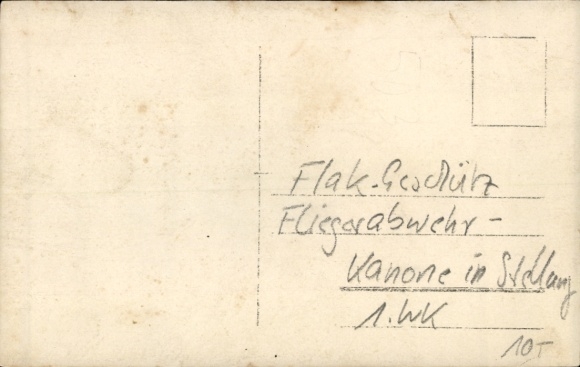 Flak-Geschütz
Fliegerabwehr-
Kanone in Stellung
1. WK
10,-